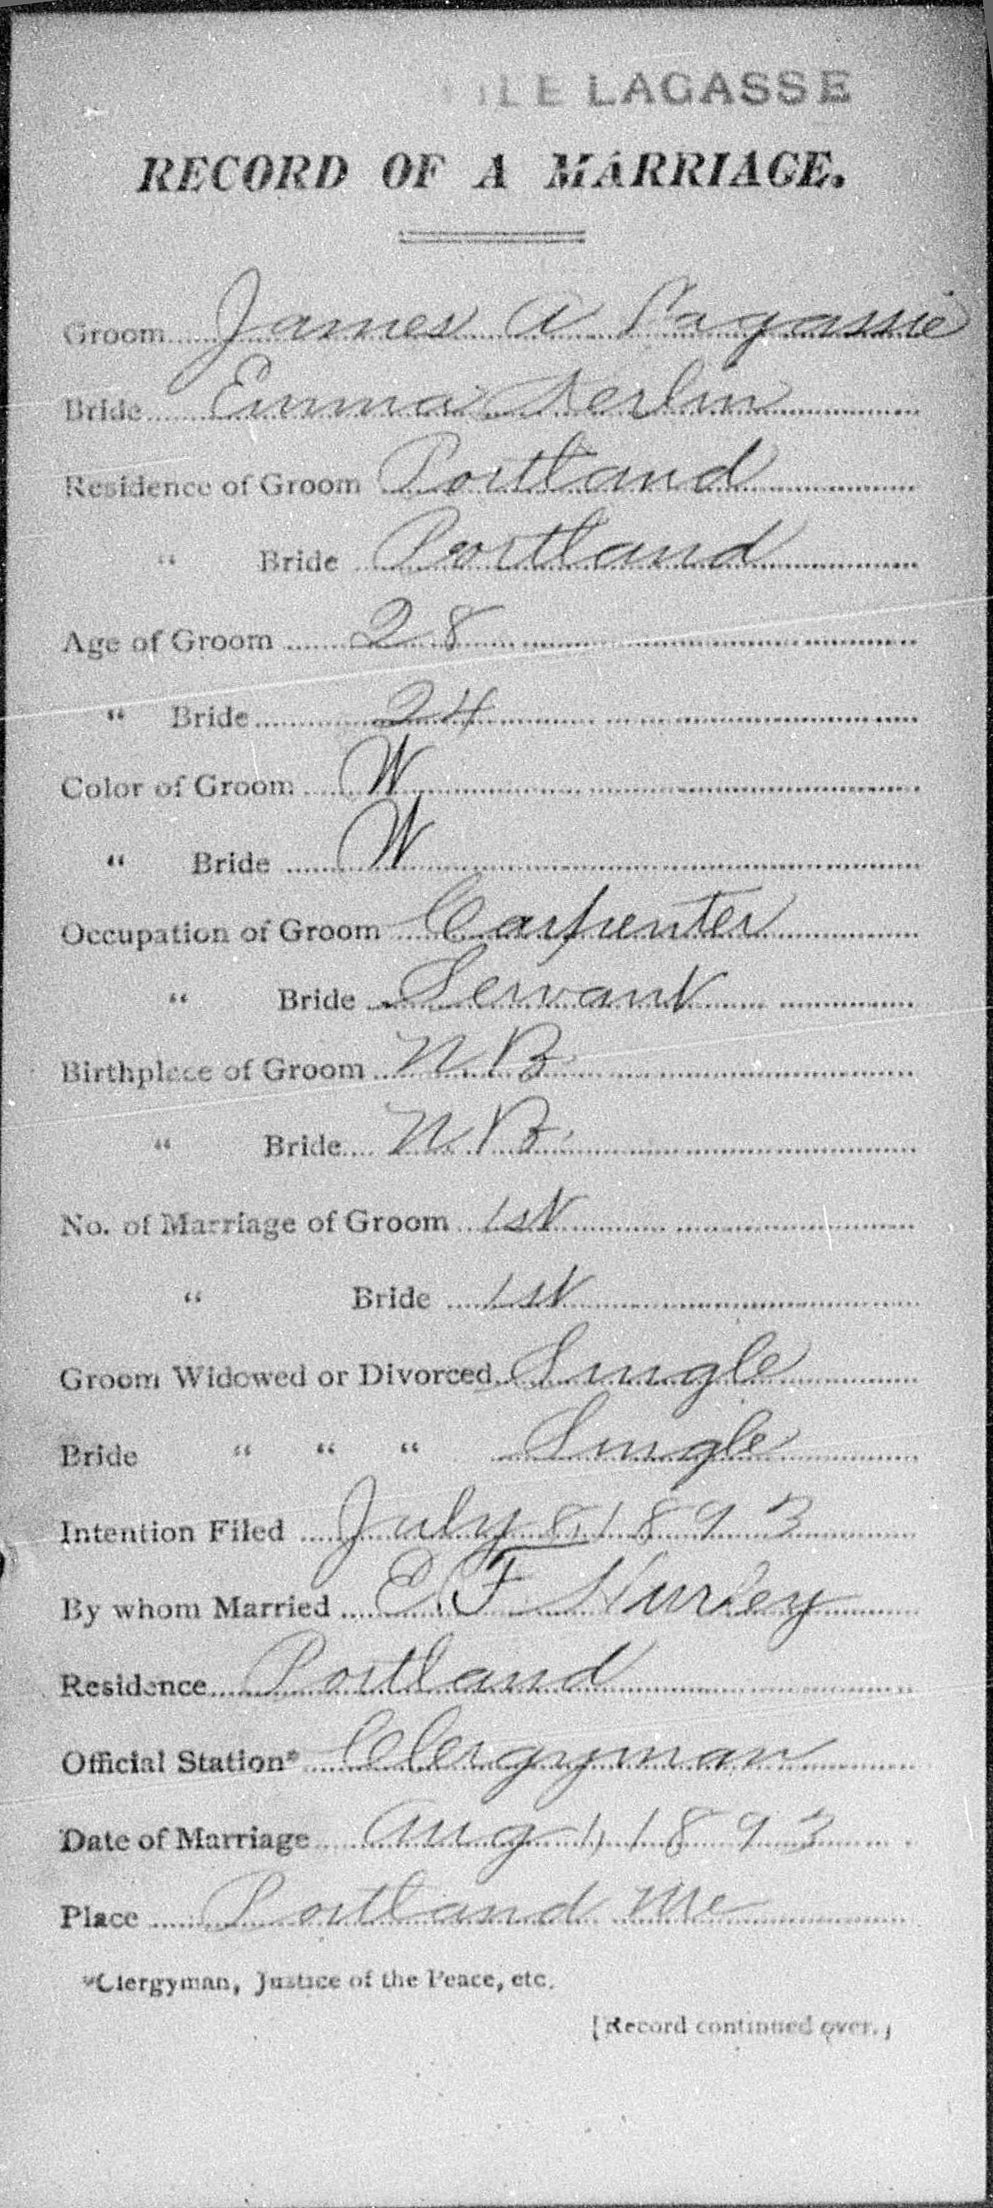 FILE LAGASSE
RECORD OF A MARRIAGE.
Groom James A Lagassie
Bride Emma Kerlin
Residence of Groom Portland
" Bride Portland
Age of Groom 28
" Bride 24
Color of Groom W
" Bride W
Occupation of Groom Carpenter
" Bride Servant
Birthplace of Groom N.B
" Bride N.B.
No. of Marriage of Groom 1st
" Bride 1st
Groom Widowed or Divorced Single
Bride " " " Single
Intention Filed July 8, 1893
By whom Married E. F. Hurley
Residence Portland
Official Station* Clergyman
Date of Marriage Aug 1, 1893
Place Portland Me
*Clergyman, Justice of the Peace, etc.
[Record continued over.]